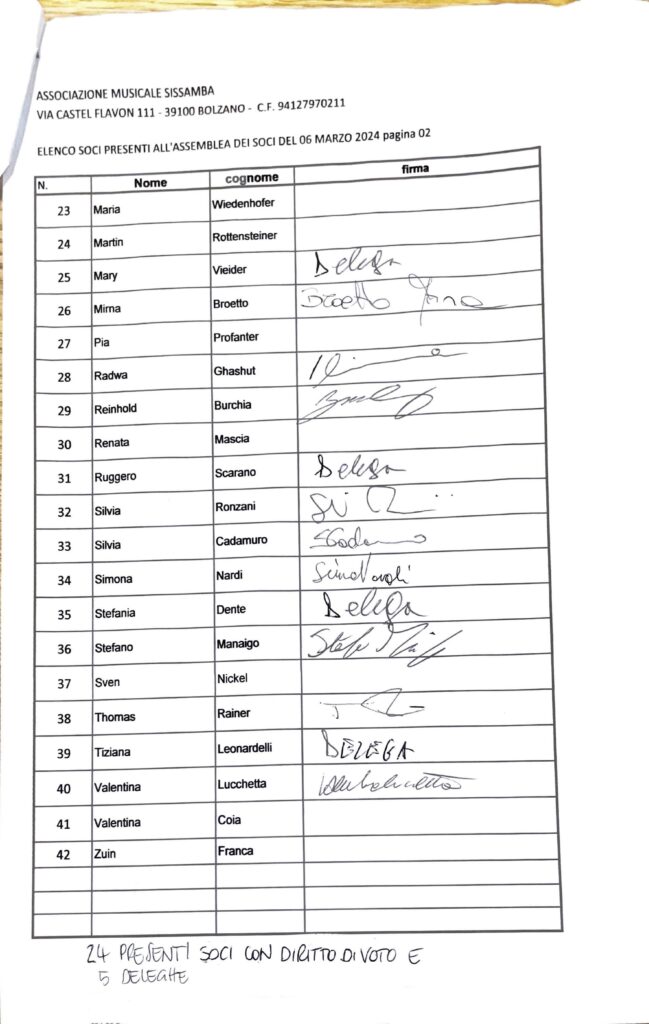 ASSOCIAZIONE MUSICALE SISSAMBA
VIA CASTEL FLAVON 111 - 39100 BOLZANO - C.F. 94127970211
ELENCO SOCI PRESENTI ALL'ASSEMBLEA DEI SOCI DEL 06 MARZO 2024 pagina 02
N. Nome cognome firma
23 Maria Wiedenhofer
24 Martin Rottensteiner
25 Mary Vieider Delega
26 Mirna Broetto Broetto Mirna
27 Pia Profanter
28 Radwa Ghashut
29 Reinhold Burchia
30 Renata Mascia
31 Ruggero Scarano Delega
32 Silvia Ronzani
33 Silvia Cadamuro
34 Simona Nardi
35 Stefania Dente Delega
36 Stefano Manaigo
37 Sven Nickel
38 Thomas Rainer
39 Tiziana Leonardelli DELEGA
40 Valentina Lucchetta
41 Valentina Coia
42 Zuin Franca
24 PRESENTI SOCI CON DIRITTO DI VOTO E
5 DELEGHE